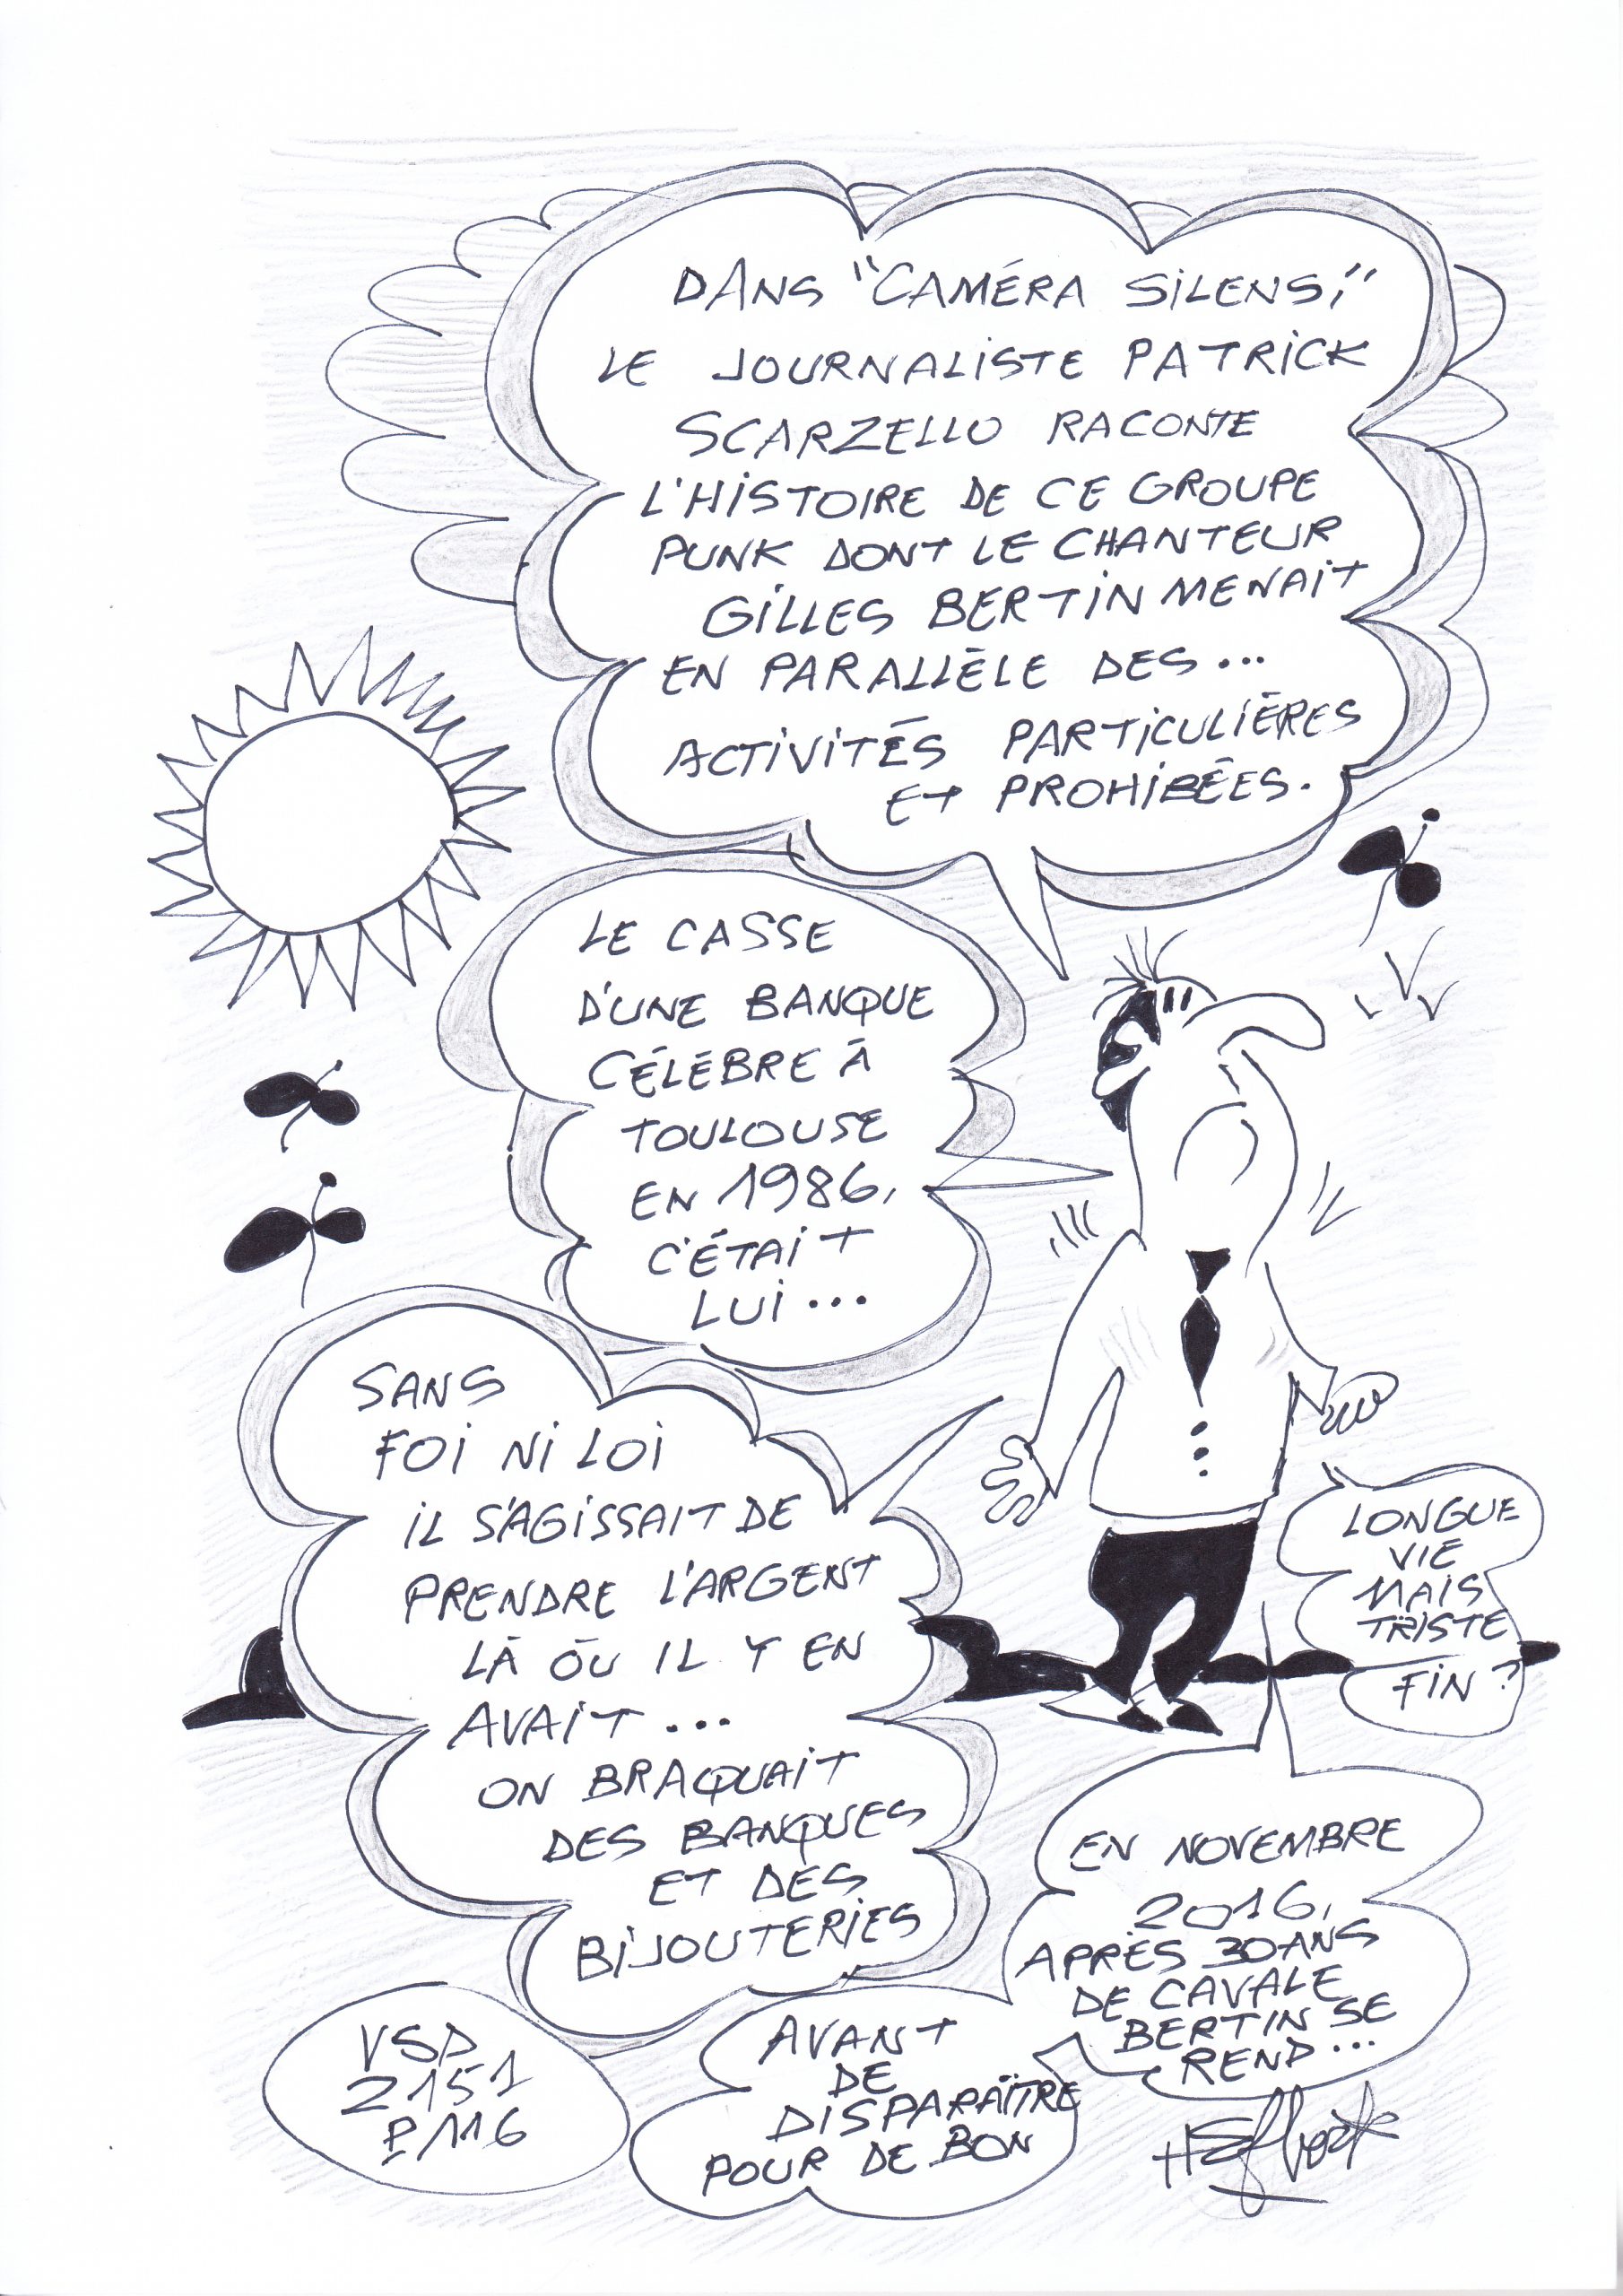 DANS "CAMÉRA SILENS,"
LE JOURNALISTE PATRICK
SCARZELLO RACONTE
L'HISTOIRE DE CE GROUPE
PUNK DONT LE CHANTEUR
GILLES BERTIN MENAIT
EN PARALLÈLE DES...
ACTIVITÉS PARTICULIÈRES
ET PROHIBÉES.
LE CASSE
D'UNE BANQUE
CÉLÈBRE À
TOULOUSE
EN 1986,
C'ÉTAIT
LUI...
SANS
FOI NI LOI
IL S'AGISSAIT DE
PRENDRE L'ARGENT
LÀ OÙ IL Y EN
AVAIT...
ON BRAQUAIT
DES BANQUES
ET DES
BIJOUTERIES
LONGUE
VIE
MAIS
TRISTE
FIN ?
EN NOVEMBRE
2016,
APRÈS 30 ANS
DE CAVALE
BERTIN SE
REND...
AVANT
DE
DISPARAÎTRE
POUR DE BON
VSD
2151
P/116